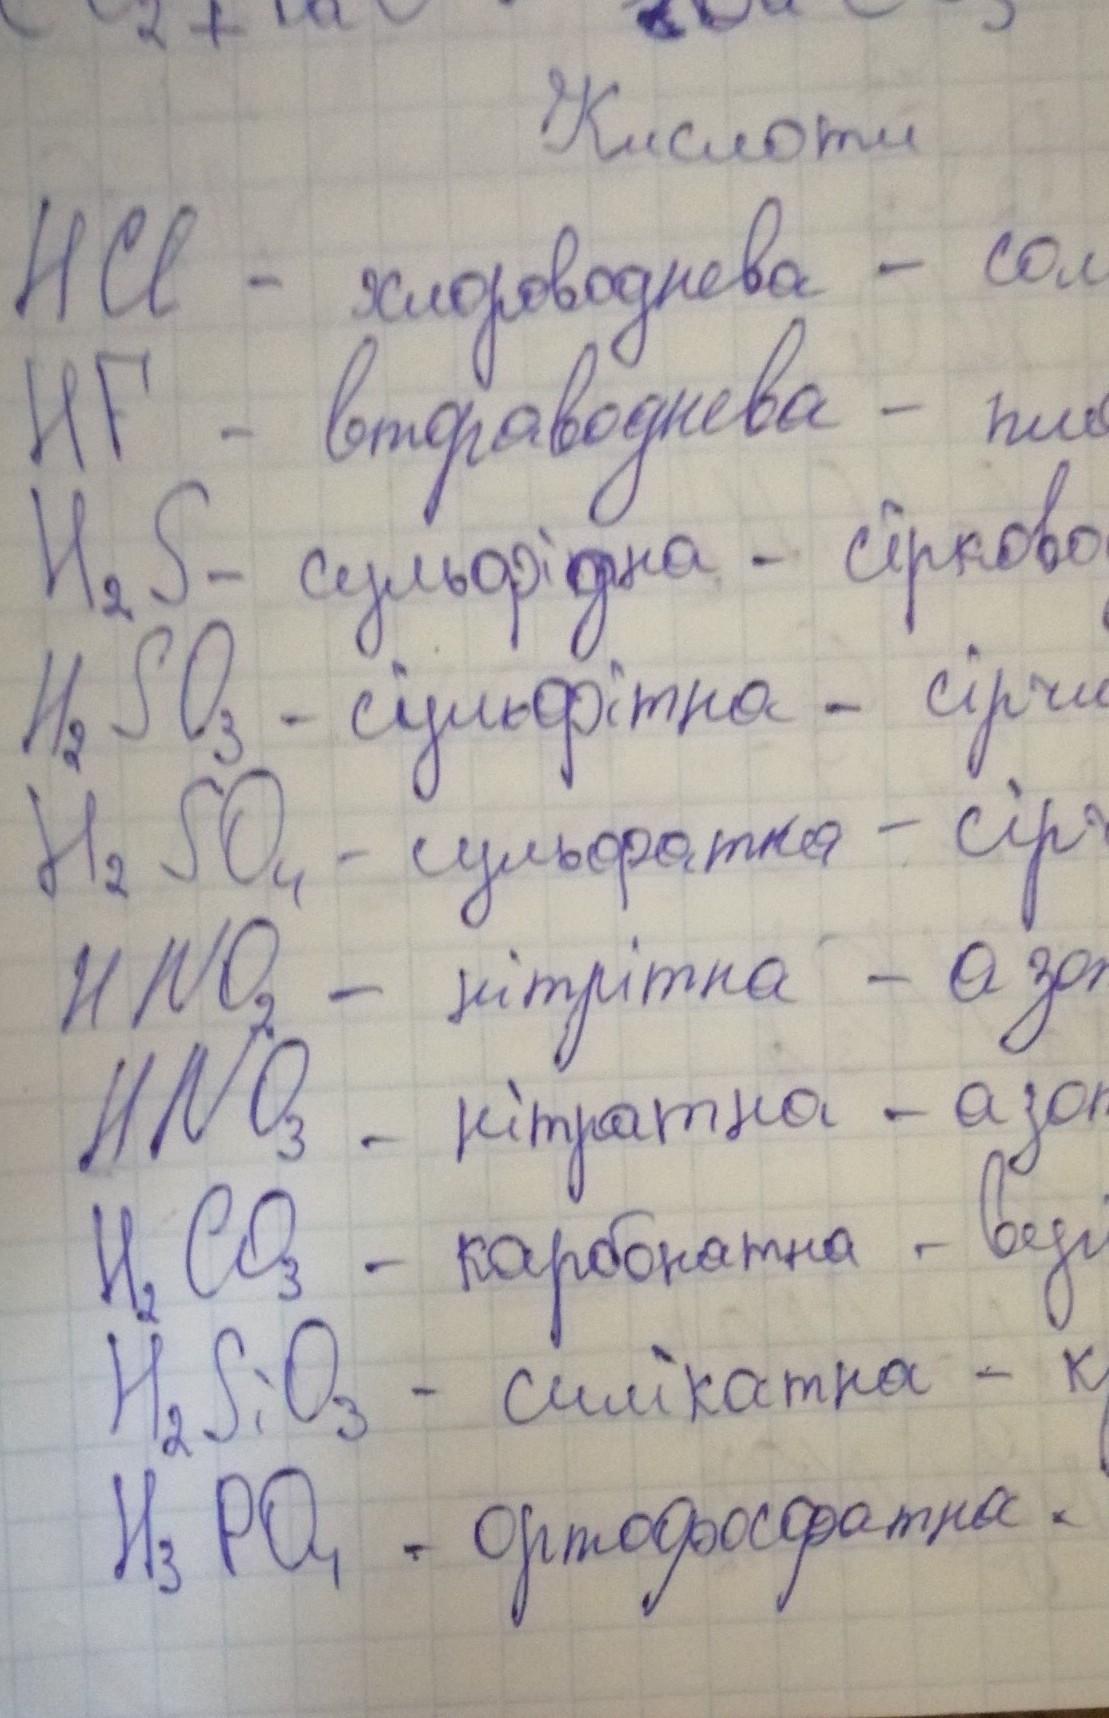 Кислоти
HCl - хлороводнева - сол
HF - втораводнева - пла
H₂S - сульфідна - сірково
H₂SO₃ - сіульфітна - сірчи
H₂SO₄ - сульфатна - сірч
HNO₂ - нітрітна - азот
HNO₃ - нітратна - азот
H₂CO₃ - карбонатна - вугі
H₂SiO₃ - силікатна - к
H₃PO₄ - ортофосфатна -